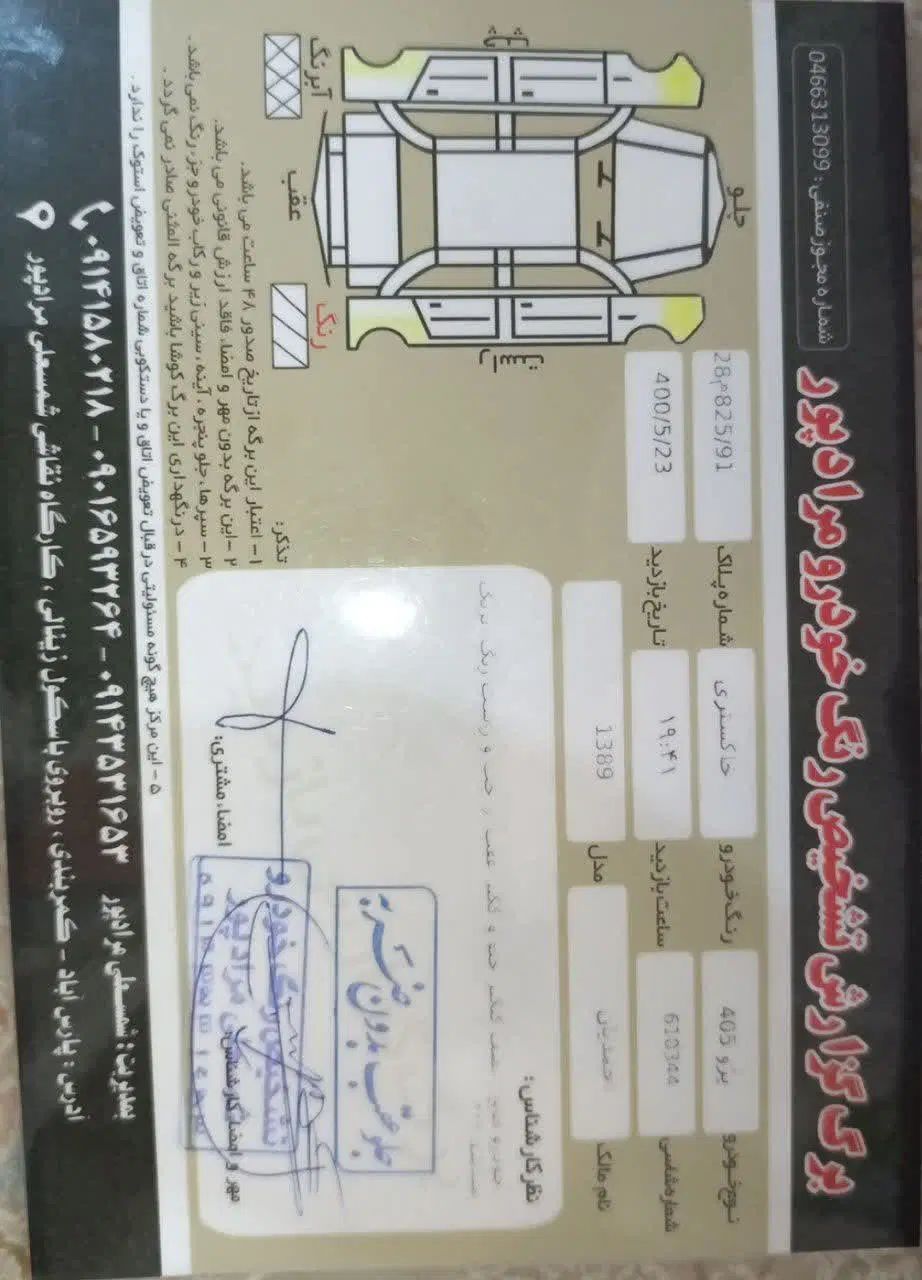 برگ گزارش تشخیص رنگ خودرو مرادپور
شماره مجوز صنفی: 0466313099
نوع خودرو پژو 405
رنگ خودرو خاکستری
شماره پلاک 28م825/91
شماره شاسی 610344
ساعت بازدید ۱۹:۴۱
تاریخ بازدید 400/5/23
نام مالک
مدل 1389
جلو
عقب
رنگ
آبرنگ
چپ
راست
نظر کارشناس:
جلو عقب بدون ضربه
تشخیص رنگ خودرو
مهر و امضاء کارشناس:
امضاء مشتری:
تذکر:
۱- اعتبار این برگه از تاریخ صدور ۴۸ ساعت می باشد.
۲- این برگه بدون مهر و امضاء فاقد ارزش قانونی می باشد.
۳- سپرها، جلو پنجره، آینه، سینی زیر و رکاب خودرو جز، رنگ نمی باشد.
۴- در نگهداری این برگ کوشا باشید برگه المثنی صادر نمی گردد.
۵- این مرکز هیچ گونه مسئولیتی در قبال تعویض اتاق و یا دستکوبی شماره اتاق و تعویض استوک را ندارد.
بمدیریت: شمسعلی مرادپور
۰۹۱۴۱۵۸۰۲۱۸ - ۰۹۰۱۶۵۹۳۲۶۴ - ۰۹۱۴۳۵۳۱۶۵۳
آدرس: پارس آباد - کمربندی، روبروی باسکول زینالی، کارگاه نقاشی شمسعلی مرادپور